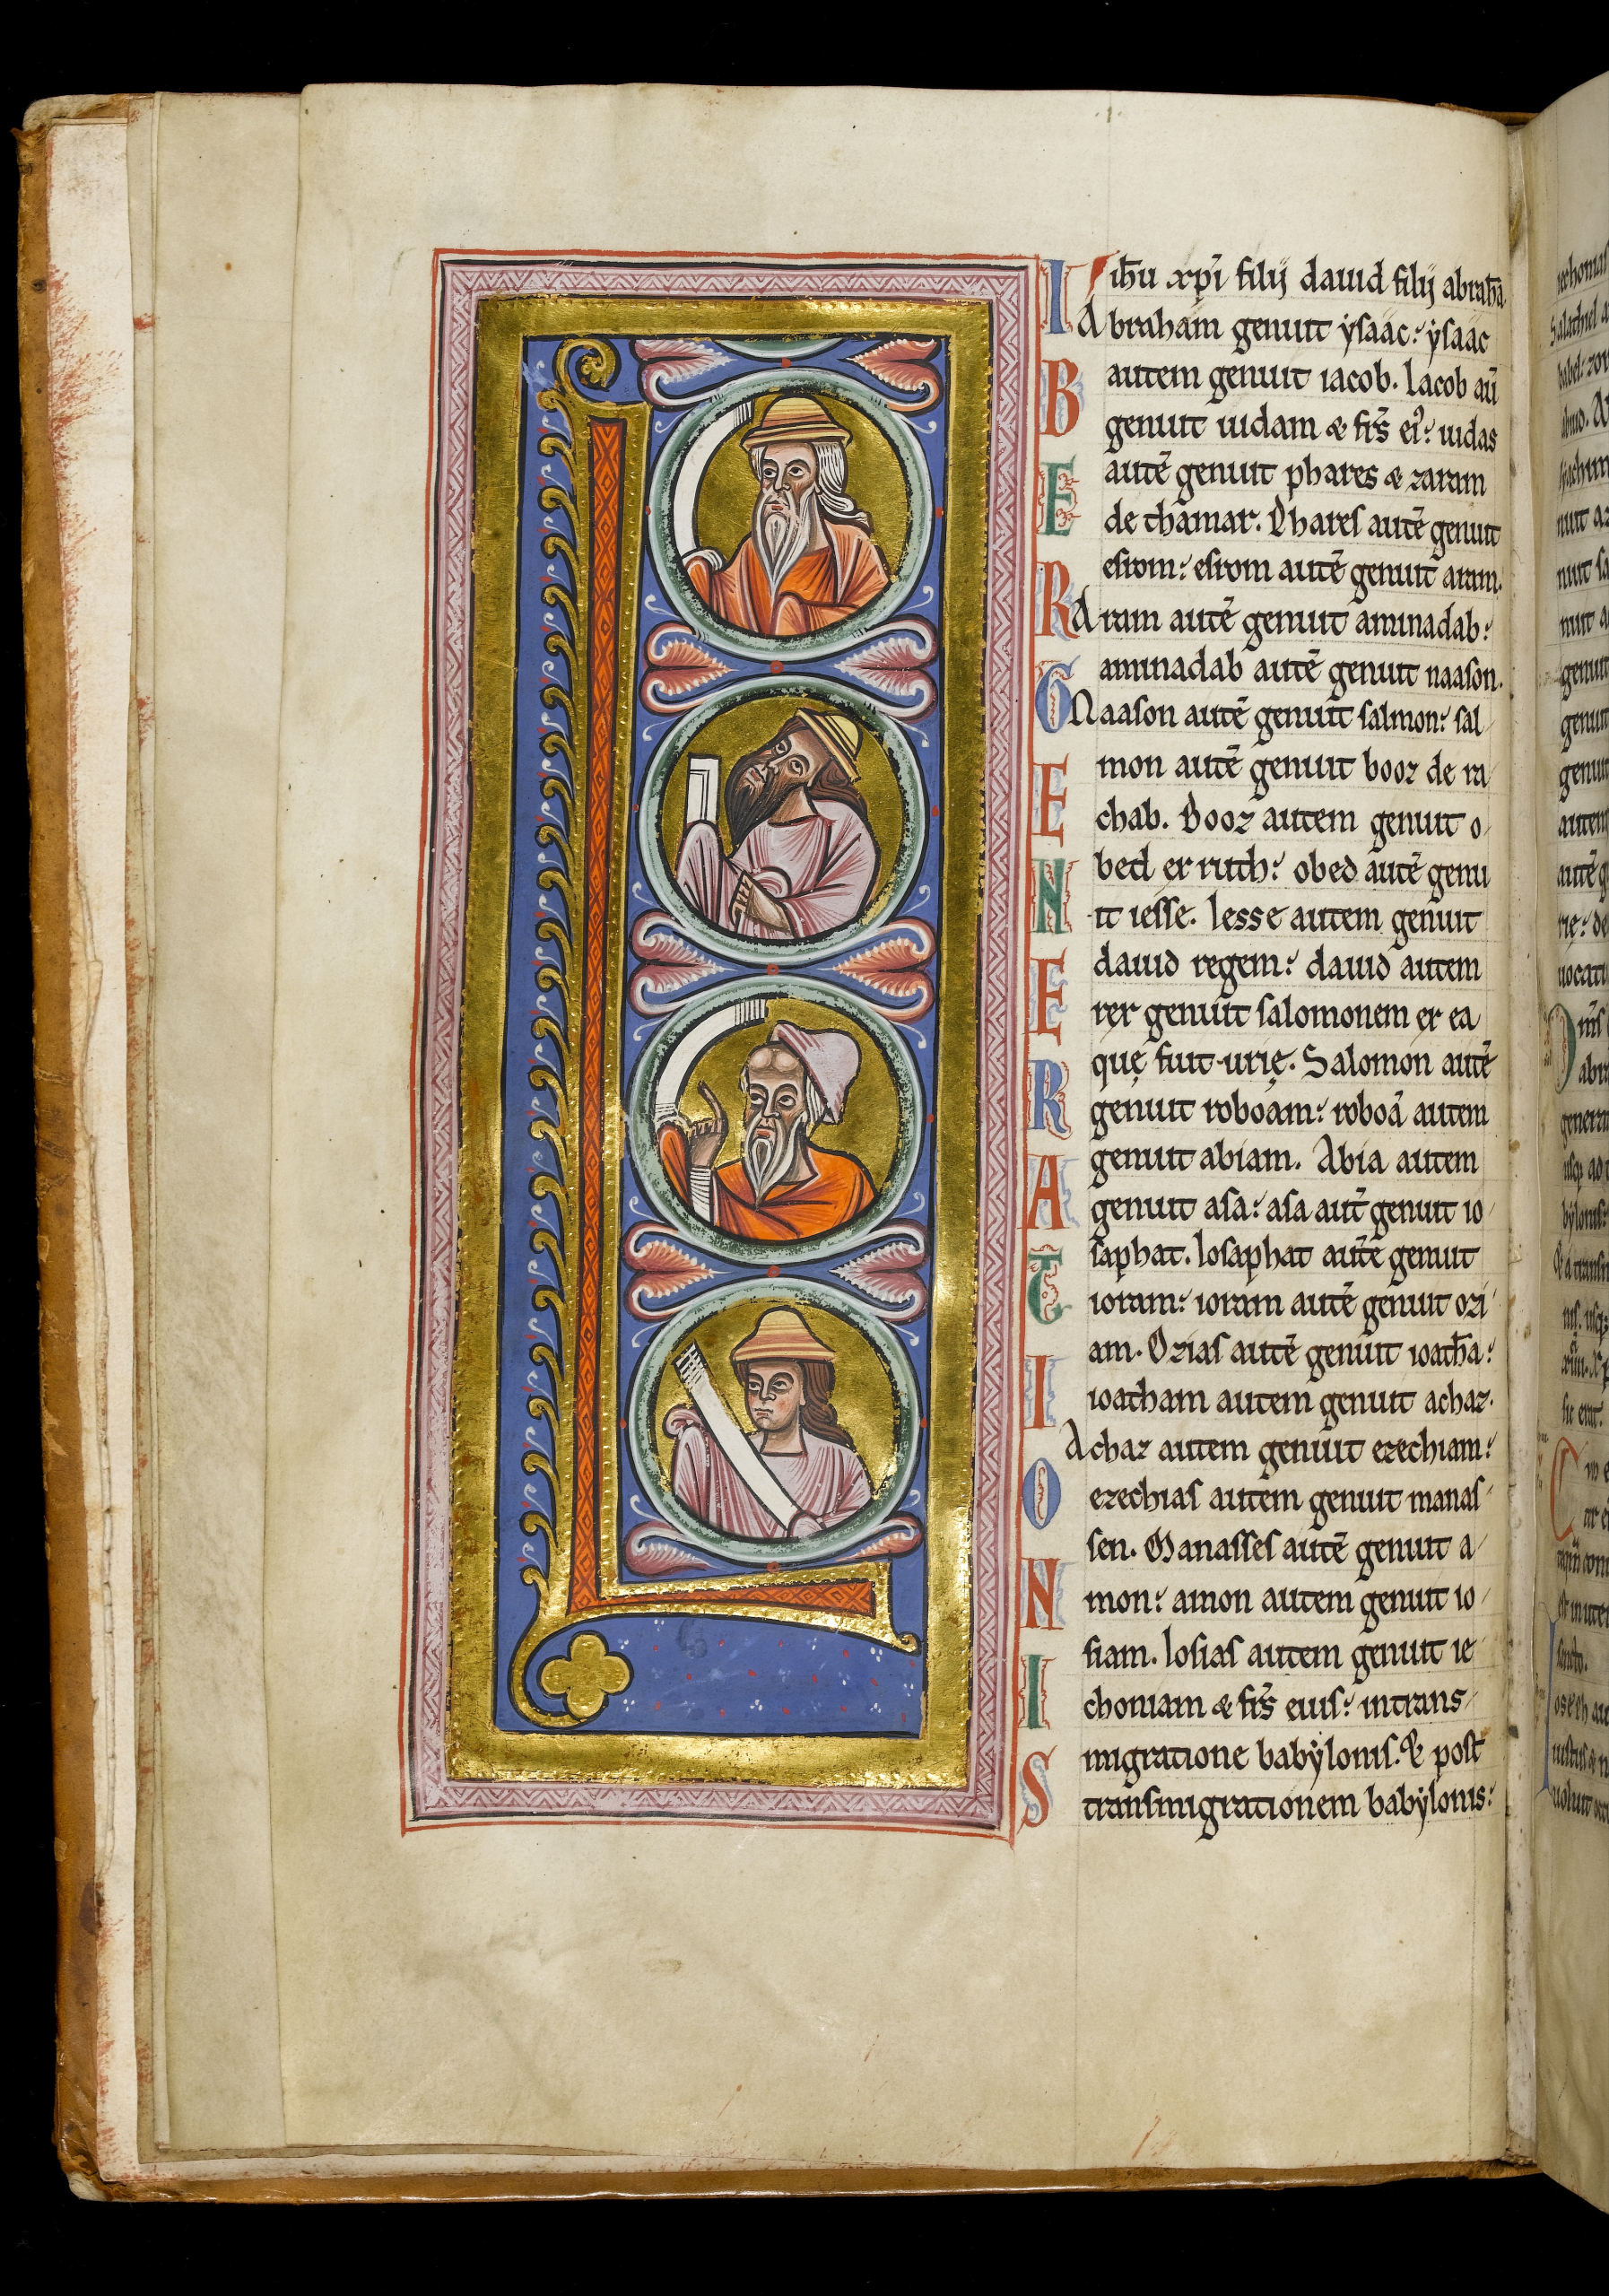 L
I
B
E
R
G
E
N
E
R
A
T
I
O
N
I
S
ih̅u xp̅i filij dauid filij abrah̅a
Abraham genuit ẏsaac: ẏsaac
autem genuit iacob. Iacob au̅
genuit iudam & fr̅s ei': iudas
aute̅ genuit phares & zaram
de thamar. Phares aute̅ genuit
esrom: esrom aute̅ genuit aram.
Aram aute̅ genuit aminadab:
aminadab aute̅ genuit naason.
Naason aute̅ genuit salmon: sal
mon aute̅ genuit booz de ra
chab. Booz autem genuit o
bed ex ruth: obed aute̅ genu
it iesse. Iesse autem genuit
dauid regem: dauid autem
rex genuit salomonem ex ea
quę fuit urię. Salomon aute̅
genuit roboam: roboa̅ autem
genuit abiam. Abia autem
genuit asa: asa aut̅ genuit io
saphat. Iosaphat aut̅e genuit
ioram: ioram aute̅ genuit ozi
am. Ozias aute̅ genuit ioath̅a:
ioatham autem genuit achaz.
Achaz autem genuit ezechiam:
ezechias autem genuit manas
sen. Manasses aute̅ genuit a
mon: amon autem genuit io
siam. Iosias autem genuit ie
choniam & fr̅s eius: in trans
migratione babẏlonis. & post
transmigrationem babylonis: